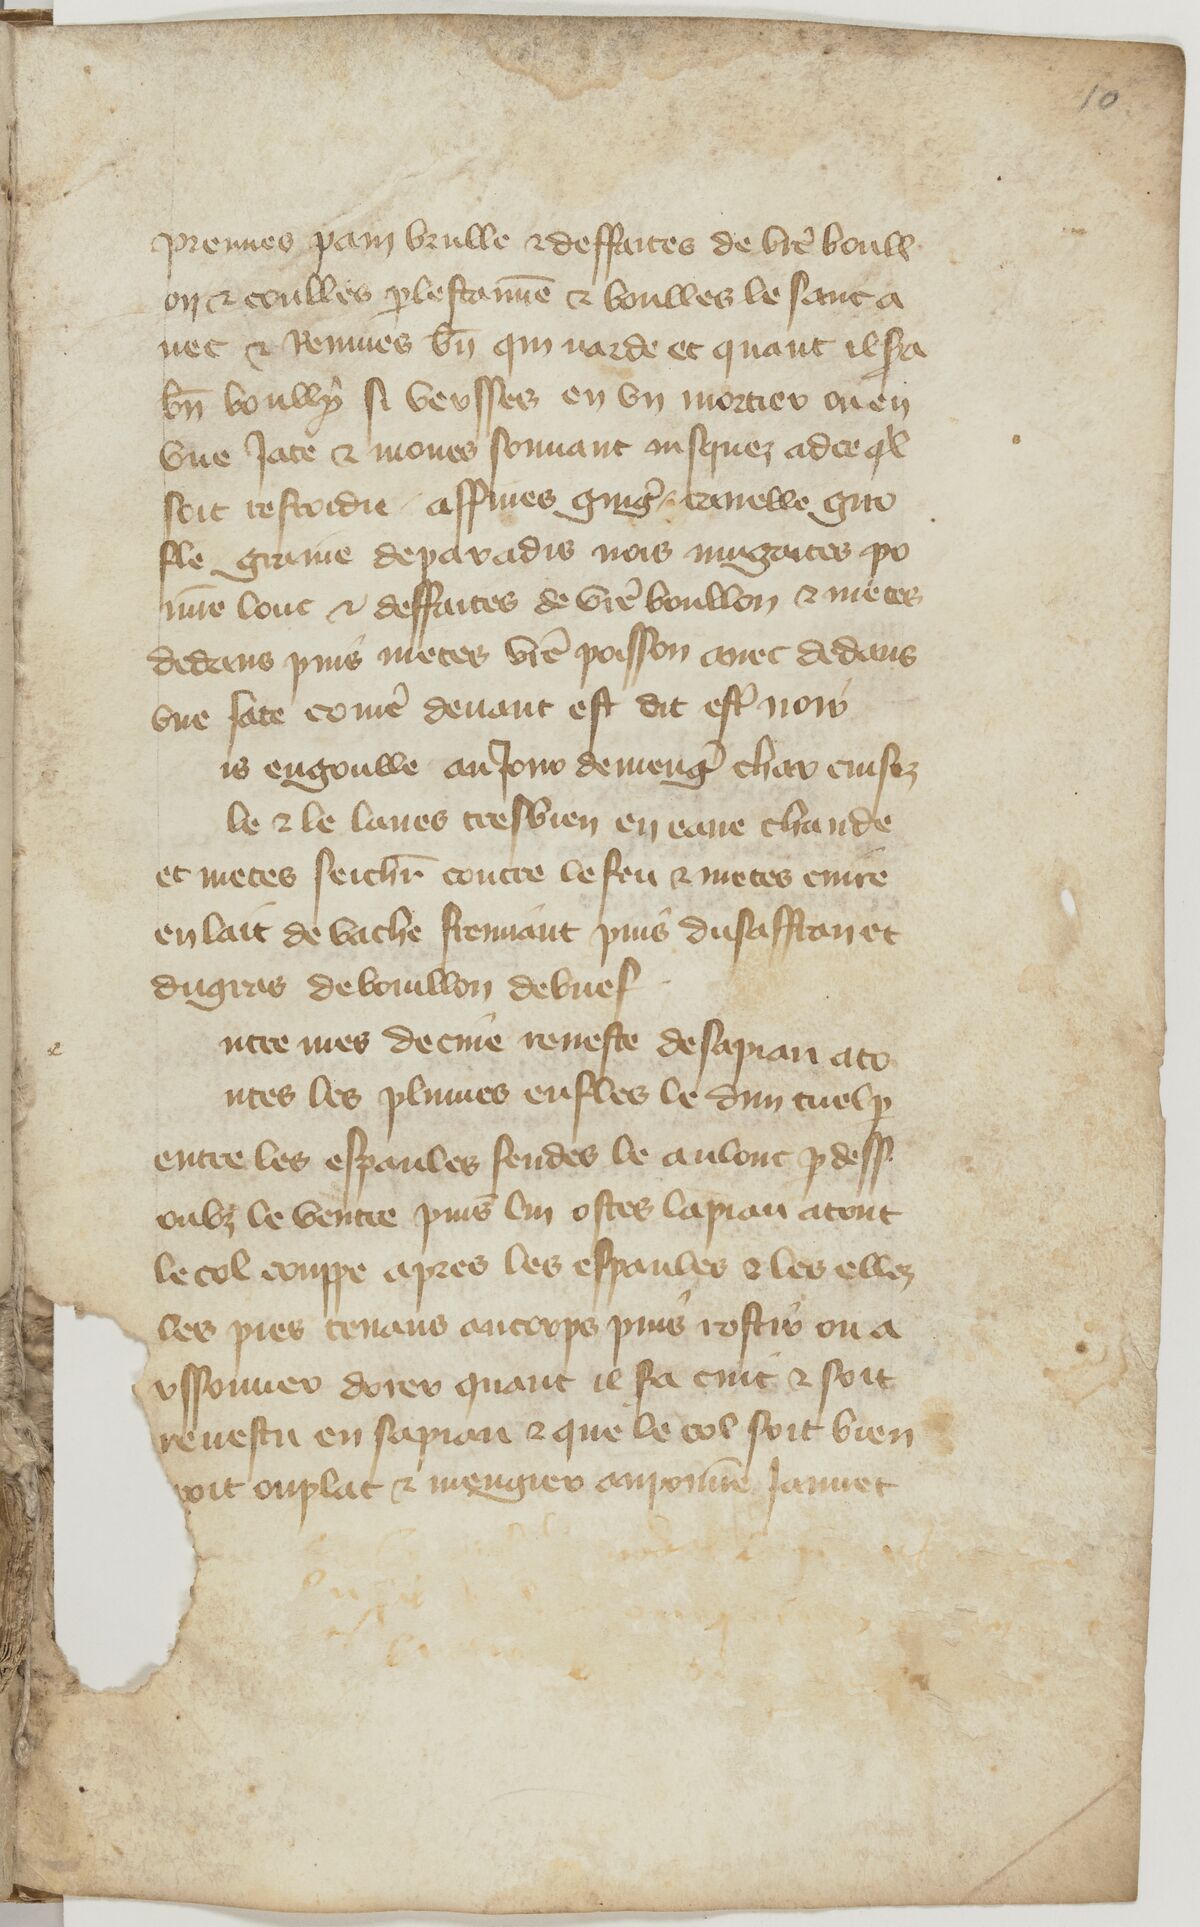 10
prennes pain brulle & deffaites de vr̃e boull
on & coulles p̱ lestamīe & boulles le sanc a
uec & Remues bñ qui narde et quant il sr̃a
bñ boully si versses en vn mortier ou en
vne Jate & moues souuant jusquez adce q̃l
soit reffroidie affines ging̃ canelle giro
fle graine de paradis nois mugaites po
iure lonc & deffaites de vr̃e boullon & metes
dedens puis metes vr̃e poisson auec dedans
vne Jate com̃e deuant est dit est noir
is engoulle au Jour de meng̃ char cuisiez
le & le laues tres bien en eaue chaude
et metes seichr̃ contre le feu & metes cuire
en lait de vache fremiant puis du saffran et
du gras de bouillon de buef
ntre mes de cine reueste de sa pian ato
utes les plumes enfles le dun tuel p̱
entre les espaules fendes le au lonc p̱ dess
oubz le ventre puis lui ostes la pian atout
le col couppe apres les espaules & les ellez
les pies tenans au corps puis rostir ou a
rssonner dorer quant il sr̃a cuit & soit
reuestu en sa pian & que le col soit bien
roit ou plat & mengier au poiure Jaunet